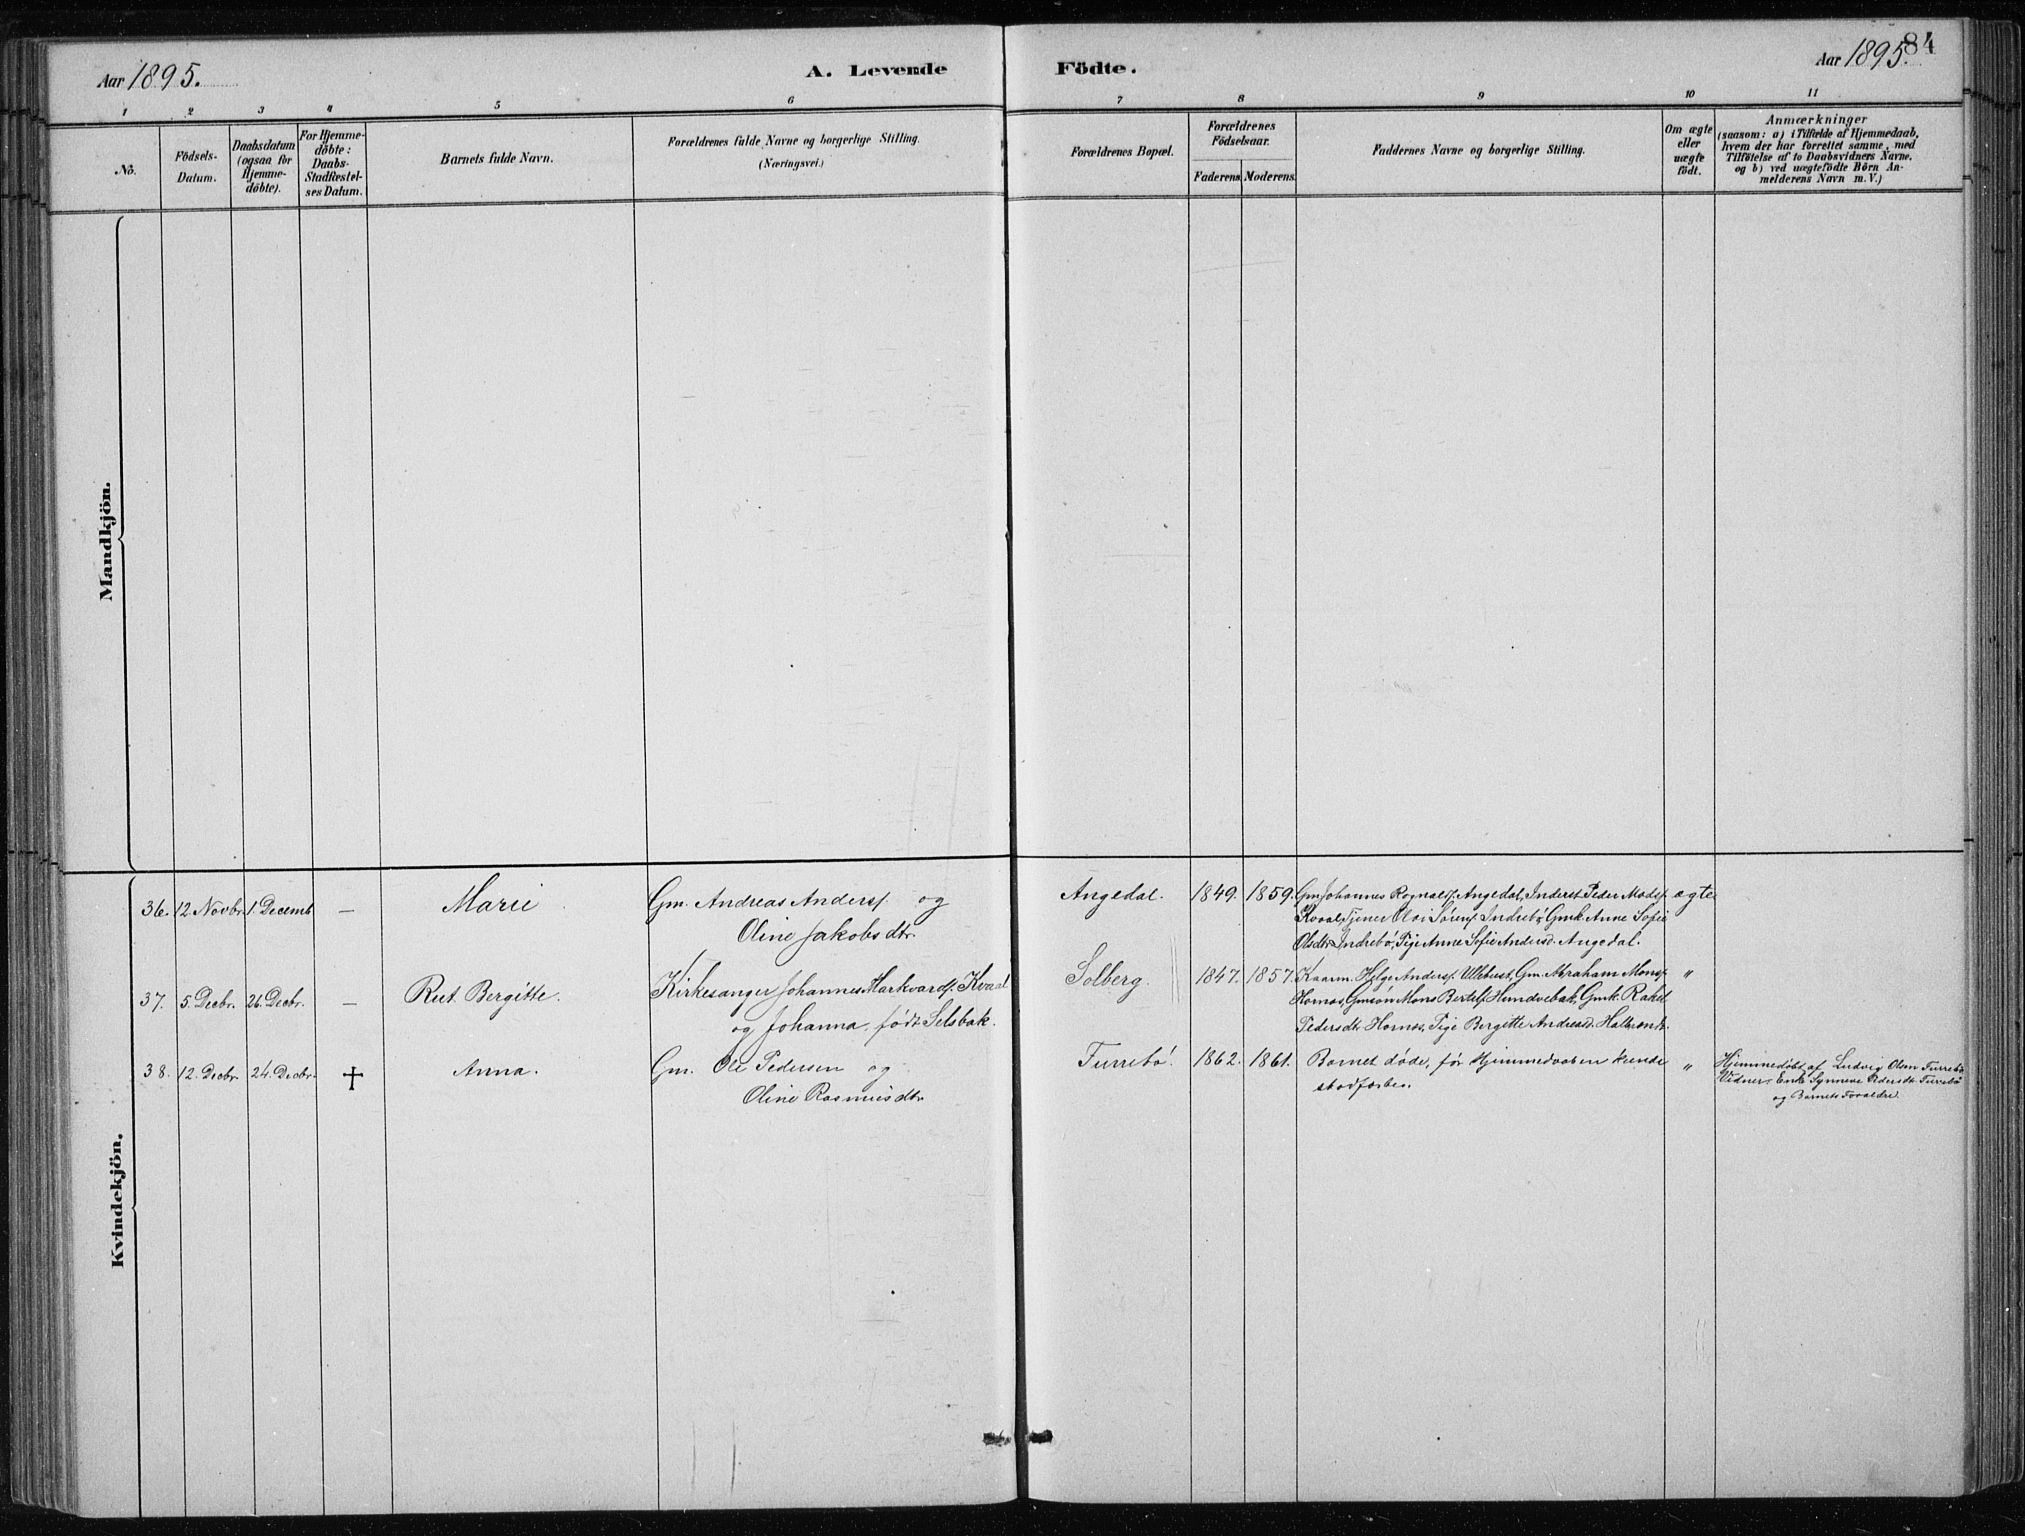 84
Aar 1895.
A. Levende Födte.
Aar 1895.
1 2 3 4 5 6 7 8 9 10 11
No.
Födsels-
Datum.
Daabsdatum
(ogsaa for
Hjemme-
döbte).
For Hjemme-
döbte:
Daabs-
Stadfæstel-
ses Datum.
Barnets fulde Navn.
Forældrenes fulde Navne og borgerlige Stilling.
(Næringsvei.)
Forældrenes Bopæl.
Forældrenes
Födselsaar.
Faderens. Moderens.
Faddernes Navne og borgerlige Stilling.
Om ægte
eller
uægte
födt.
Anmærkninger
(saasom: a) i Tilfælde af Hjemmedaab,
hvem der har forrettet samme, med
Tilföielse af to Daabsvidners Navne.
og b) ved uægtefödte Börn An-
melderens Navn m. V.)
Mandkjön.
Kvindekjön.
36. 12 Novbr. 1. Decemb. — Marie. Gm. Andreas Anders. og
Oline Jakobsdtr.
Angedal. 1849. 1859. Gm. Johannes Rognals. Angedal, Inderst Peder Mads.
Kvaal, Tjener Oloi Sørens. Indrebö, Gmk. Anne Sofie
Olsdtr. Indrebö, Pige Anne Sofie Andersd. Angedal.
ægte
37. 5. Decbr. 26. Decbr. — Rut Bergitte. Kirkesanger Johannes Markvards. Kvaal
og Johanna, født Selsbak.
Solberg. 1847. 1857. Kaarm. Helge Anders. Ullebust, Gm. Abraham Mons.
Hornes, Gmsøn Mons Bertels. Hundvebak, Gmk. Rakel
Pedersdtr. Hornes, Pige Bergitte Andreasd. Halbrendt.
"
38. 12. Decbr. 24. Decbr. † Anna. Gm. Ole Pedersen og
Oline Rasmusdtr.
Furrebö. 1862. 1861. Barnet døde, før Hjemmedaaben kunde
stadfæstes.
"
Hjemmedøbt af Ludvig Olsen Furrebö
Vidner: Enke Synneve Pedersdtr. Furrebö
og Barnets Forældre.